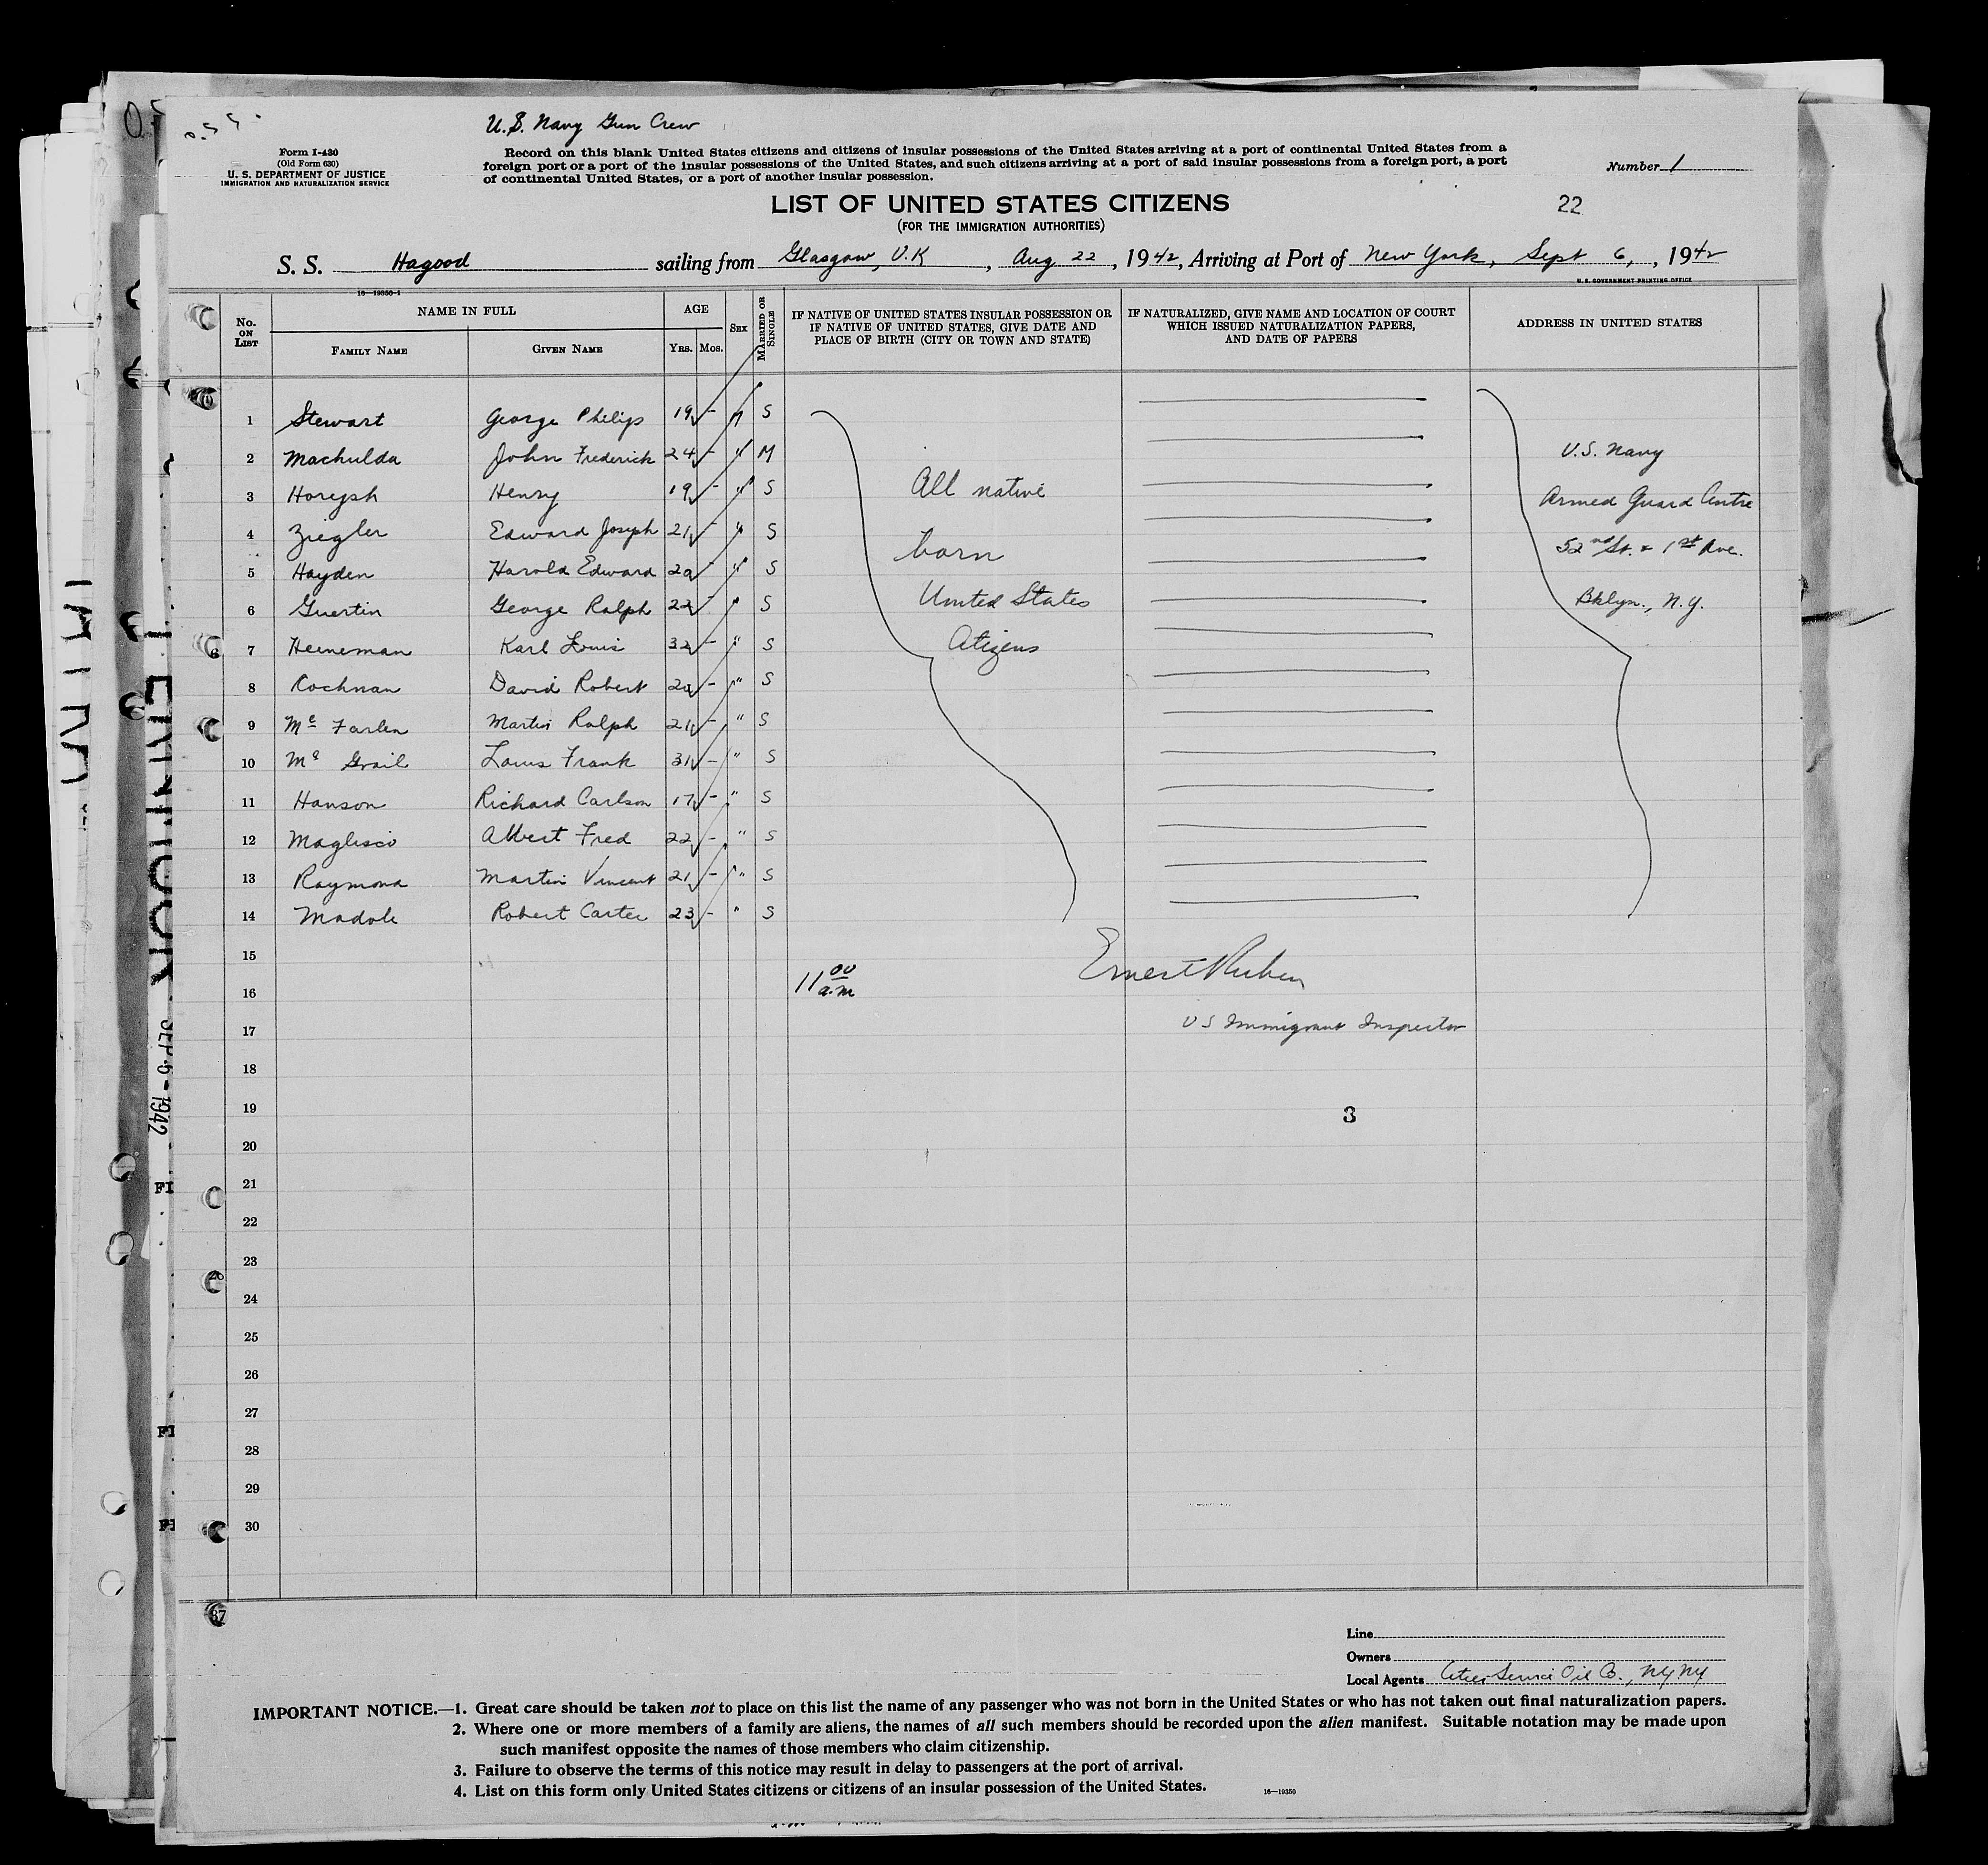 U.S. Navy Gun Crew
Form I-430
(Old Form 630)
U. S. DEPARTMENT OF JUSTICE
IMMIGRATION AND NATURALIZATION SERVICE
Record on this blank United States citizens and citizens of insular possessions of the United States arriving at a port of continental United States from a
foreign port or a port of the insular possessions of the United States, and such citizens arriving at a port of said insular possessions from a foreign port, a port
of continental United States, or a port of another insular possession.
Number 1
LIST OF UNITED STATES CITIZENS
(FOR THE IMMIGRATION AUTHORITIES)
22
S. S. Hagood sailing from Glasgow, U.K, Aug 22, 1942, Arriving at Port of New York, Sept 6, , 1942
16—19350-1
U. S. GOVERNMENT PRINTING OFFICE
No. ON LIST
NAME IN FULL
FAMILY NAME
GIVEN NAME
AGE
YRS. MOS.
SEX
MARRIED OR SINGLE
IF NATIVE OF UNITED STATES INSULAR POSSESSION OR
IF NATIVE OF UNITED STATES, GIVE DATE AND
PLACE OF BIRTH (CITY OR TOWN AND STATE)
IF NATURALIZED, GIVE NAME AND LOCATION OF COURT
WHICH ISSUED NATURALIZATION PAPERS,
AND DATE OF PAPERS
ADDRESS IN UNITED STATES
1 Stewart George Philip 19 - M S
2 Machulda John Frederick 24 - " M
3 Henry 19 - " S
4 Ziegler Edward Joseph 21 - " S
5 Hayden Harold Edward 20 - " S
6 Guertin George Ralph 22 - " S
7 Heineman Karl Louis 32 - " S
8 David Robert 20 - " S
9 Mc Farlen Martin Ralph 21 - " S
10 Mc Grail Louis Frank 31 - " S
11 Hanson Richard Carlson 17 - " S
12 Maglisco Albert Fred 22 - " S
13 Raymond Martin Vincent 21 - " S
14 Madole Robert Carter 23 - " S
All native
born
United States
Citizens
U.S. Navy
Armed Guard Centre
52nd St. & 1st Ave.
Bklyn., N.Y.
15
16
17
18
19
20
21
22
23
24
25
26
27
28
29
30
11 00 a.m
Ernest Ruben
U S Immigrant Inspector
3
SEP 5 - 1942
37
Line
Owners
Local Agents Cities Service Oil Co., NY NY
IMPORTANT NOTICE.—1. Great care should be taken not to place on this list the name of any passenger who was not born in the United States or who has not taken out final naturalization papers.
2. Where one or more members of a family are aliens, the names of all such members should be recorded upon the alien manifest. Suitable notation may be made upon
such manifest opposite the names of those members who claim citizenship.
3. Failure to observe the terms of this notice may result in delay to passengers at the port of arrival.
4. List on this form only United States citizens or citizens of an insular possession of the United States.
16—19350